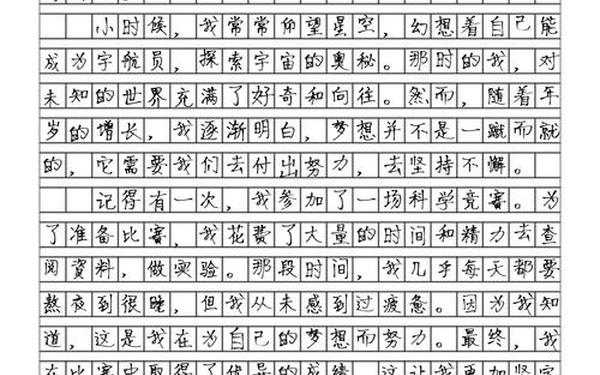 小时候，我常常仰望星空，幻想着自己能
成为宇航员，探索宇宙的奥秘。那时的我，对
未知的世界充满了好奇和向往。然而，随着年
岁的增长，我逐渐明白，梦想并不是一蹴而就
的，它需要我们去付出努力，去坚持不懈。
记得有一次，我参加了一场科学竞赛。为
了准备比赛，我花费了大量的时间和精力去查
阅資料，做实验。那段时间，我几乎每天都要
熬夜到很晚，但我从未感到过疲惫。因为我知
道，这是我在为自己的梦想而努力。最终，我
在比赛中取得了优异的成绩，这让我更加坚定